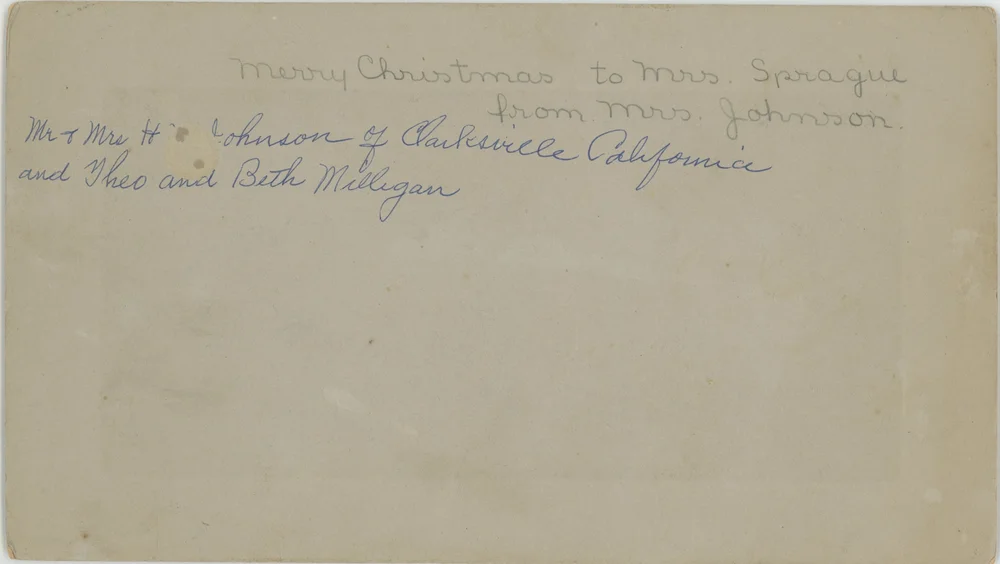 Merry Christmas to Mrs. Sprague
from Mrs. Johnson.
Mr & Mrs H Johnson of Clarksville California
and Theo and Beth Milligan